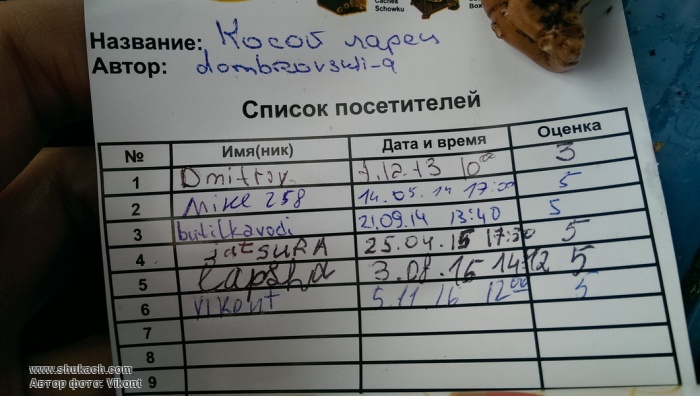 Caches
Schowku
Box
Название: Косой ларец
Автор: dombrovskii-a
Список посетителей
№ Имя(ник) Дата и время Оценка
1 Dmitriy 1.12.13 10⁰⁰ 3
2 Mike 258 14.05.14 17:00 5
3 butilkavodi 21.09.14 13:40 5
4 jatSURA 25.04.15 17:30 5
5 Lapsha 3.01.16 14:12 5
6 Vikont 5.11.16 12⁰⁰ 5
7
8
9
www.shukach.com
Автор фото: Vikont